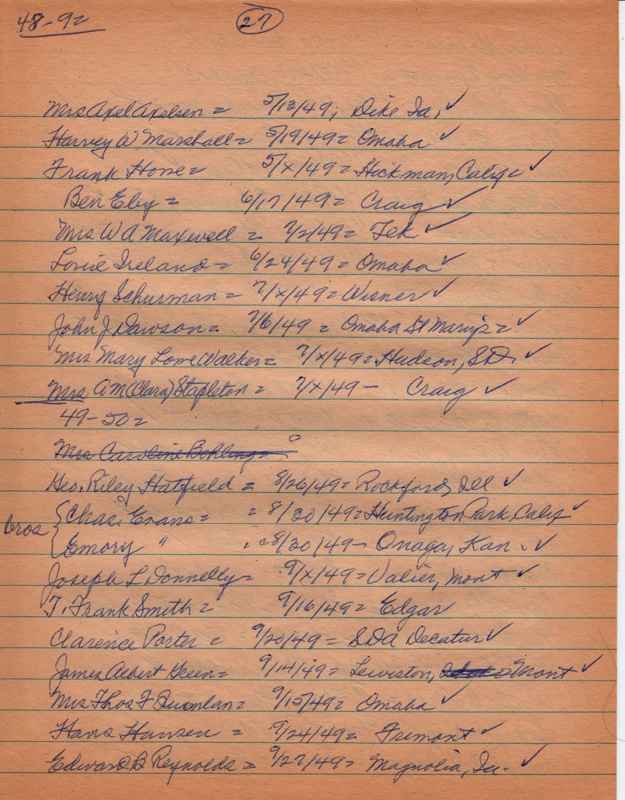 48-9= 27
Mrs Axel Axelsen = 5/13/49, Dike Ia, ✓
Harvey W Marshall = 5/19/49 = Omaha ✓
Frank Horne = 5/x/49 = Hickman, Calif = ✓
Ben Eby = 6/17/49 = Craig ✓
Mrs W A Maxwell = 7/2/49 = Tek ✓
Lovie Ireland = 6/24/49 = Omaha ✓
Henry Schurman = 7/x/49 = Wisner ✓
John J Dawson = 7/6/49 = Omaha St Mary's = ✓
Mrs Mary Lowe Walker = 7/x/49 = Hudson, S.D. ✓
Mrs A M (Clara) Stapleton = 7/x/49 - Craig ✓
49-50 =
Mrs Caroline Bohling =
Geo. Riley Hatfield = 8/26/49 = Rockford, Ill ✓
bros { Chas. Evans = = 8/20/49 = Huntington Park, Calif ✓
Emory " = 8/30/49 - Onaga, Kan. ✓
Joseph L Donnelly = 9/x/49 = Valier, Mont ✓
T. Frank Smith = 9/16/49 = Edgar
Clarence Porter = 9/20/49 = SDA Decatur ✓
James Albert Green = 9/14/49 = Lewiston, Mont ✓
Mrs Thos F Quinlan = 9/15/49 = Omaha ✓
Hans Hansen = 9/24/49 = Fremont ✓
Edward B Reynolds = 9/27/49 = Magnolia, Ia. ✓